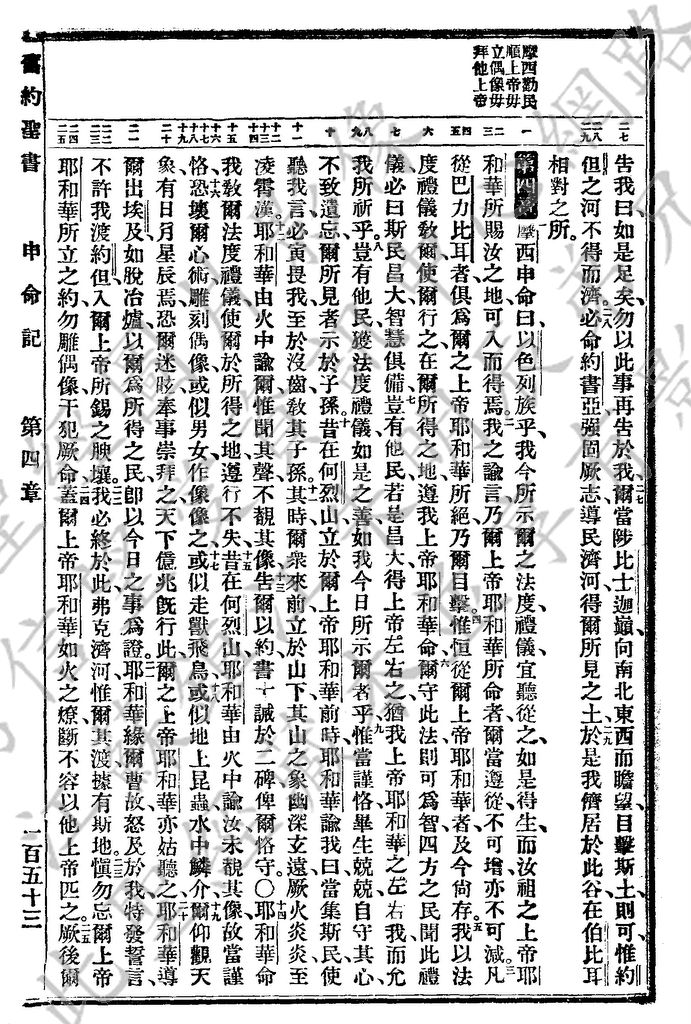 摩西勸民
順上帝毋
立偶像毋
拜他上帝
告我曰如是足矣勿以此事再告於我爾當陟比士迦嶺向南北東西而瞻望目擊斯土則可惟約
但之河不得而濟必命約書亞強固厥志導民濟河得爾所見之土於是我儕居於此谷在伯比耳
相對之所。
第四章 摩西申命曰以色列族乎我今所示爾之法度禮儀宜聽從之如是得生而汝祖之上帝耶
和華所賜汝之地可入而得焉我之諭言乃爾上帝耶和華所命者爾當遵從不可增亦不可減凡
從巴力比耳者俱爲爾之上帝耶和華所絕乃爾目擊惟恒從爾上帝耶和華者及今尙存我以法
度禮儀敎爾使爾行之在爾所得之地遵我上帝耶和華命爾守此法則可爲智四方之民聞此禮
儀必曰斯民昌大智慧俱備豈有他民若是昌大得上帝左右之猶我上帝耶和華之左右我而允
我所祈乎豈有他民獲法度禮儀如是之善如我今日所示爾者乎惟當謹恪畢生兢兢自守其心
不致遺忘爾所見者示於子孫昔在何烈山立於爾上帝耶和華前時耶和華諭我曰當集斯民使
聽我言必寅畏我至於沒齒敎其子孫其時爾衆來前立於山下其山之象幽深玄遠厥火炎炎至
凌霄漢耶和華由火中諭爾惟聞其聲不覩其像告爾以約書十誡於二碑俾爾恪守〇耶和華命
我敎爾法度禮儀使爾於所得之地遵行不失昔在何烈山耶和華由火中諭汝未覩其像故當謹
恪恐壞爾心術雕刻偶像或似男女作像像之或似走獸飛鳥或似地上昆蟲水中鱗介爾仰觀天
象有日月星辰焉恐爾迷眩奉事崇拜之天下億兆旣行此爾之上帝耶和華亦姑聽之耶和華導
爾出埃及如脫冶爐以爾爲所得之民卽以今日之事爲證耶和華緣爾曹故怒及於我特發誓言
不許我渡約但入爾上帝所錫之腴壤我必終於此弗克濟河惟爾其渡據有斯地愼勿忘爾上帝
耶和華所立之約勿雕偶像干犯厥命蓋爾上帝耶和華如火之燎斷不容以他上帝匹之厥後爾
舊約聖書 申命記 第四章 一百五十三